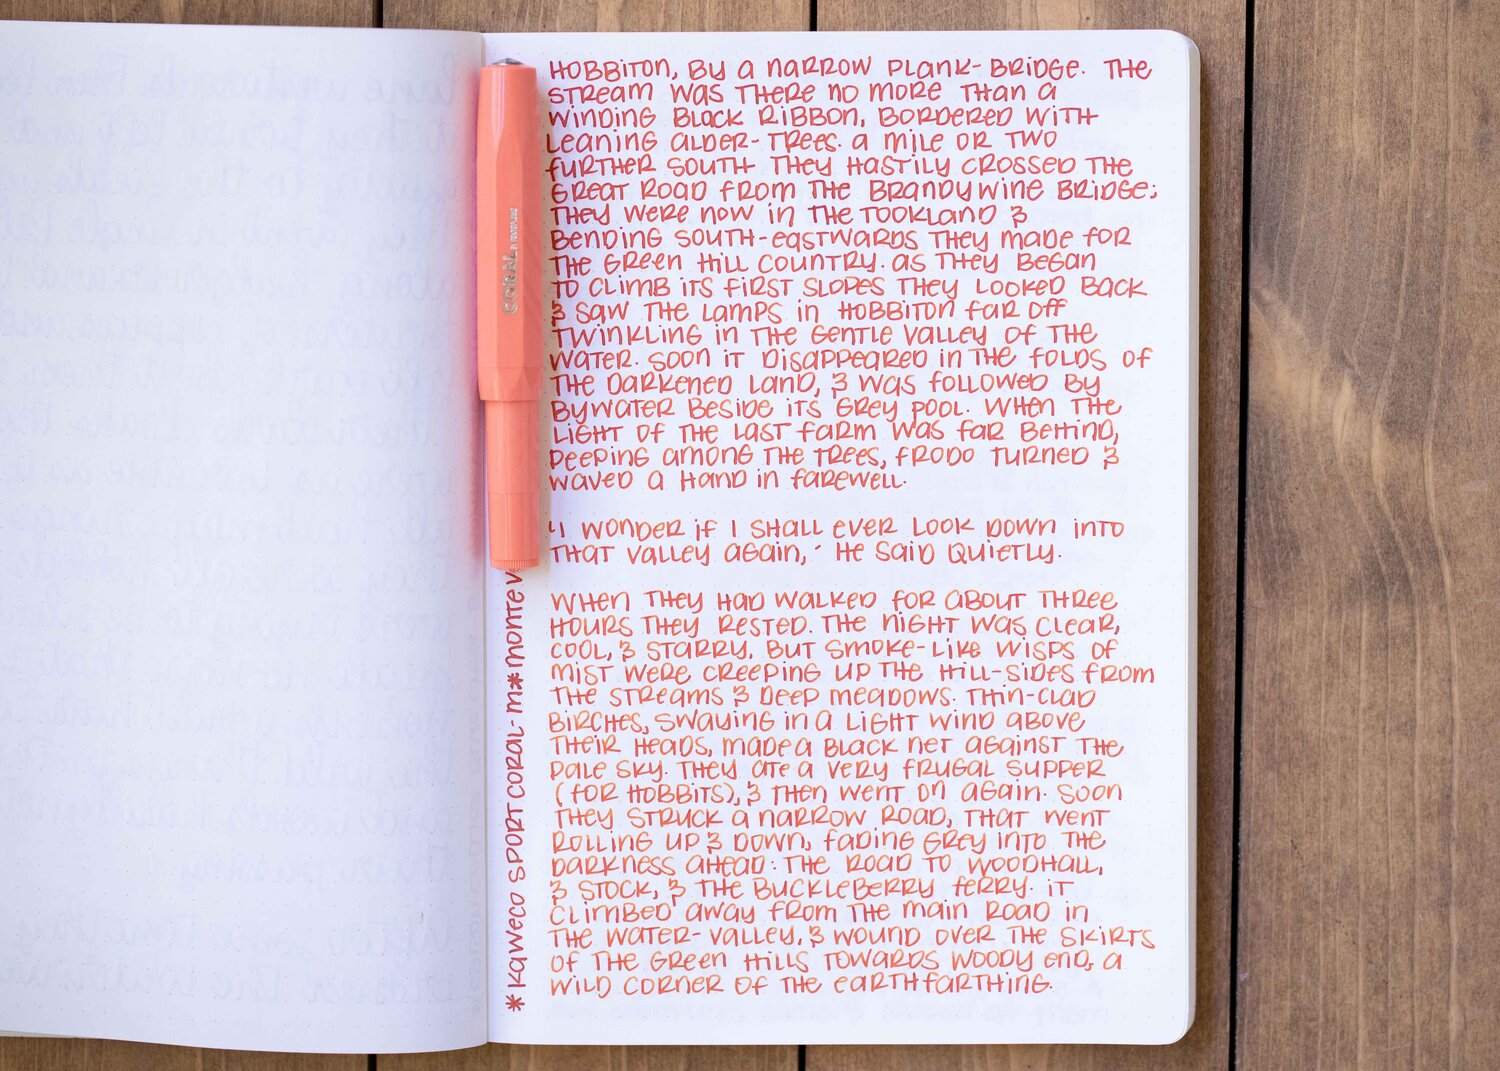 HOBBITON, BY A NARROW PLANK-BRIDGE. THE
STREAM WAS THERE NO MORE THAN A
WINDING BLACK RIBBON, BORDERED WITH
LEANING ALDER-TREES. A MILE OR TWO
FURTHER SOUTH THEY HASTILY CROSSED THE
GREAT ROAD FROM THE BRANDYWINE BRIDGE;
THEY WERE NOW IN THE TOOKLAND &
BENDING SOUTH-EASTWARDS THEY MADE FOR
THE GREEN HILL COUNTRY. AS THEY BEGAN
TO CLIMB ITS FIRST SLOPES THEY LOOKED BACK
& SAW THE LAMPS IN HOBBITON FAR OFF
TWINKLING IN THE GENTLE VALLEY OF THE
WATER. SOON IT DISAPPEARED IN THE FOLDS OF
THE DARKENED LAND, & WAS FOLLOWED BY
BYWATER BESIDE ITS GREY POOL. WHEN THE
LIGHT OF THE LAST FARM WAS FAR BEHIND,
PEEPING AMONG THE TREES, FRODO TURNED &
WAVED A HAND IN FAREWELL.
'I WONDER IF I SHALL EVER LOOK DOWN INTO
THAT VALLEY AGAIN,' HE SAID QUIETLY.
WHEN THEY HAD WALKED FOR ABOUT THREE
HOURS THEY RESTED. THE NIGHT WAS CLEAR,
COOL, & STARRY, BUT SMOKE-LIKE WISPS OF
MIST WERE CREEPING UP THE HILL-SIDES FROM
THE STREAMS & DEEP MEADOWS. THIN-CLAD
BIRCHES, SWAYING IN A LIGHT WIND ABOVE
THEIR HEADS, MADE A BLACK NET AGAINST THE
PALE SKY. THEY ATE A VERY FRUGAL SUPPER
(FOR HOBBITS), & THEN WENT ON AGAIN. SOON
THEY STRUCK A NARROW ROAD, THAT WENT
ROLLING UP & DOWN, FADING GREY INTO THE
DARKNESS AHEAD: THE ROAD TO WOODHALL,
& STOCK, & THE BUCKLEBERRY FERRY. IT
CLIMBED AWAY FROM THE MAIN ROAD IN
THE WATER-VALLEY, & WOUND OVER THE SKIRTS
OF THE GREEN HILLS TOWARDS WOODY END, A
WILD CORNER OF THE EASTFARTHING.
* KAWECO SPORT CORAL-M * MONTEV
CORAL